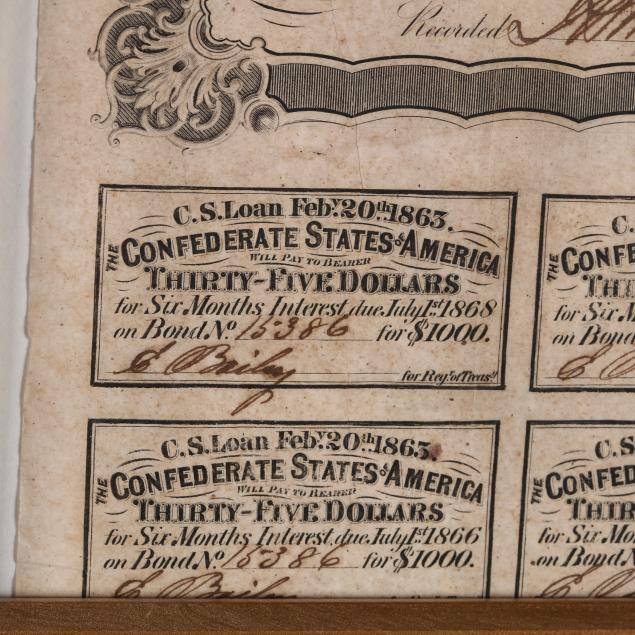 Recorded
C.S. Loan Feb.y 20th 1863.
THE CONFEDERATE STATES OF AMERICA
WILL PAY TO BEARER
THIRTY-FIVE DOLLARS
for Six Months Interest, due July 1st 1868
on Bond No. 15386 for $1000.
E Bailey
for Reg.r of Treas.y
C.
THE CONFE
THI
for Six M
on Bond
E
C.S. Loan Feb.y 20th 1863.
THE CONFEDERATE STATES OF AMERICA
WILL PAY TO BEARER
THIRTY-FIVE DOLLARS
for Six Months Interest, due July 1st 1866
on Bond No. 15386 for $1000.
E Bailey
C.S
THE CONFED
THIR
for Six Mo
on Bond N